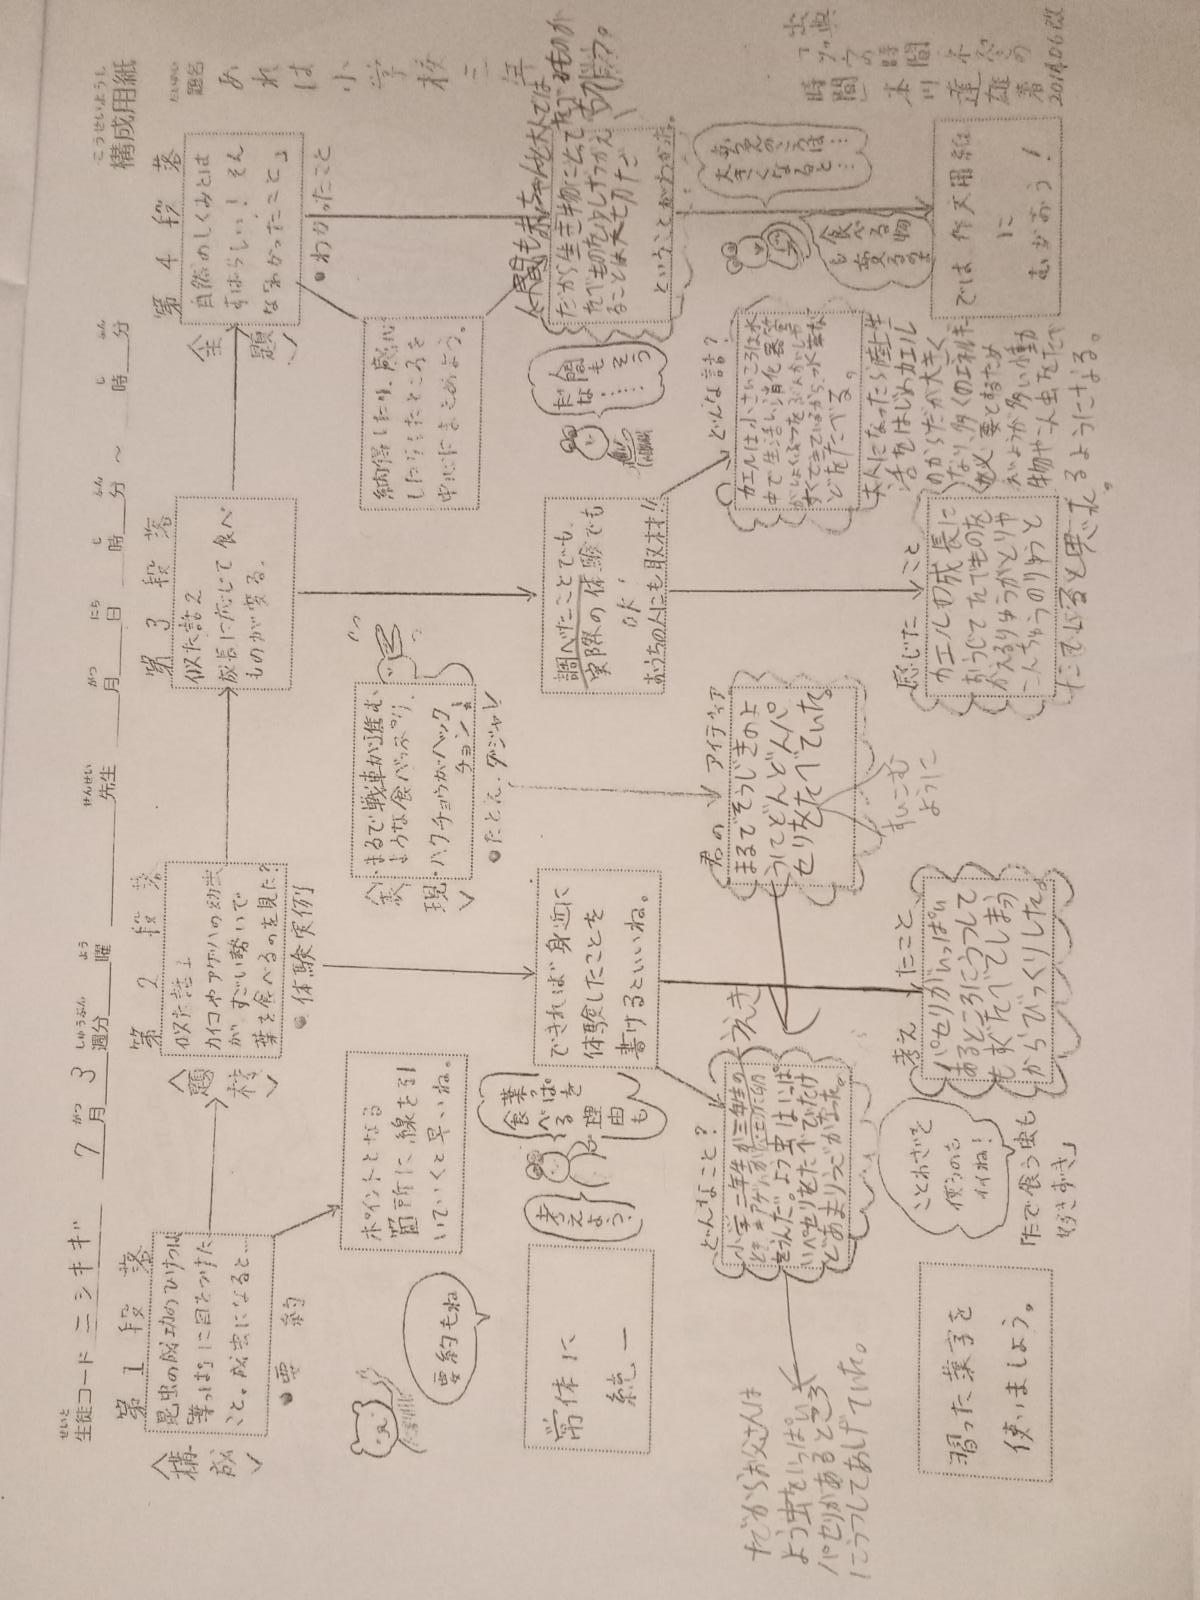 構成用紙
こうせいようし
生徒コード ニシキギ
せいと
7月3週分
がつ しゅうぶん
曜
よう
先生
せんせい
月 日 時 分 ～ 時 分
がつ にち じ ふん じ ふん
題名
だいめい
あれは小学校二年
第1段落
〈構成〉
昆虫の成功のひけつは
「葉っぱ」に目をつけた
こと。成虫になると…
●要約
第2段落
〈題材〉
似た話1
カイコやアゲハの幼虫
が、すごい勢いで
葉を食べるのを見た?
●体験実例
第3段落
似た話2
成長に応じて食べ
ものが変る。
第4段落
〈主題〉
自然のしくみとは
すばらしい!そん
な「わかったこと」
●わかったこと
ポイントとなる
箇所に、線を引
いていくと早いね。
要約もね
〈表現〉
・まるで戦車が進む
ような食べっぷり、
・ハクチョウがハックチョン
●たとえ、ダジャレ
納得したり、感心
したりしたところを
中心にまとめよう。
常体に
統一
葉っぱを
食べる
理由も
考えよう!
できれば身近に
体験したことを
書けるといいね。
調べたことでも、
実際の体験でも
OK!
おうちの人にも取材!!
人間も赤ちゃんと大人では
だから生き物にとって
ということがわかった。
人間も…そう
だな…
どんなこと?
君のアイディア
まるでそうじきのよ
うにてどんどんパ
セリをたべていた。
すいこむ
ように
だからお父さんは
よう虫をいっぱい
パセリがあるところ
にうつしてあげていた。
どんな話?
カエルは小さいころは水
中で生活し、消化器官
大人になったら陸上生
活をはじめカエル
のからだが大きく
なり、多くのエネルギー
が必要とするため
えいようが多い動
物やこん虫をたべ
れるようになる。
赤ちゃんのころは…
大きくなると…
食べる物
も変るの
考えたこと
パセリがいっぱい
あるところにうつして
もすぐたべてしまう
からびっくりした。
感じたこと
カエルの成長に
おうじてたべものを
かえるりゆうがとりや
こんちゅうのりゆうと
にてると思った。
ことわざを
使うのも
イイね!
「たで食う虫も
好きずき」
習った漢字を
使いましょう。
では作文用紙
に
むかおう!
出典
「ゾウの時間 ネズミの
時間」 本川達雄著
2014.06改